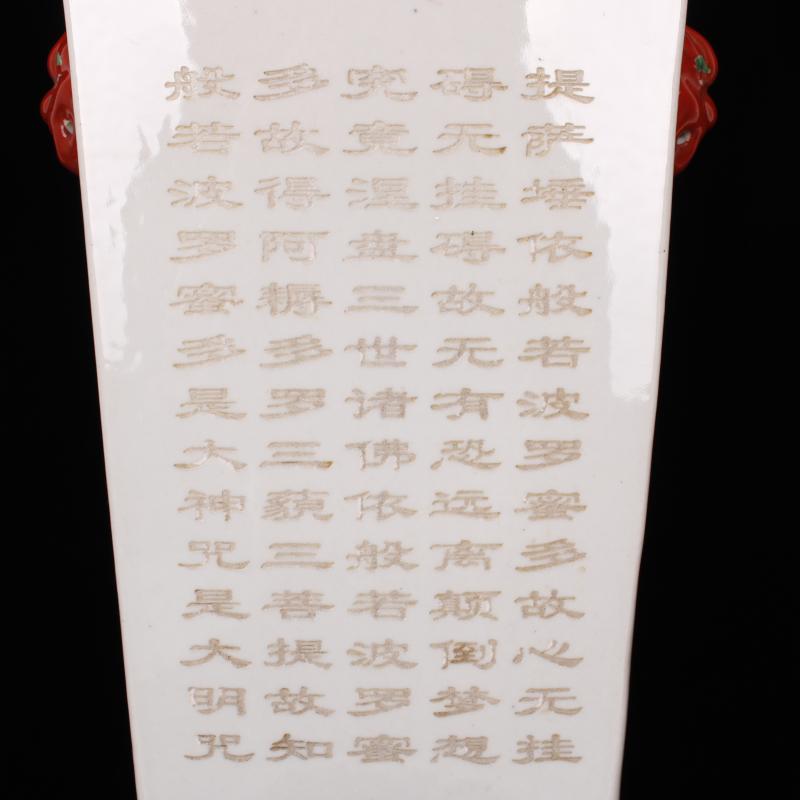 提萨埵依般若波罗蜜多故心无挂
碍无挂碍故无有恐远离颠倒梦想
究竟涅盘三世诸佛依般若波罗蜜
多故得阿耨多罗三藐三菩提故知
般若波罗蜜多是大神咒是大明咒